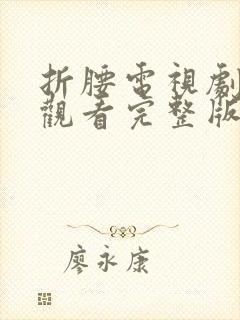 折腰電視劇
觀看完整版
廖永康